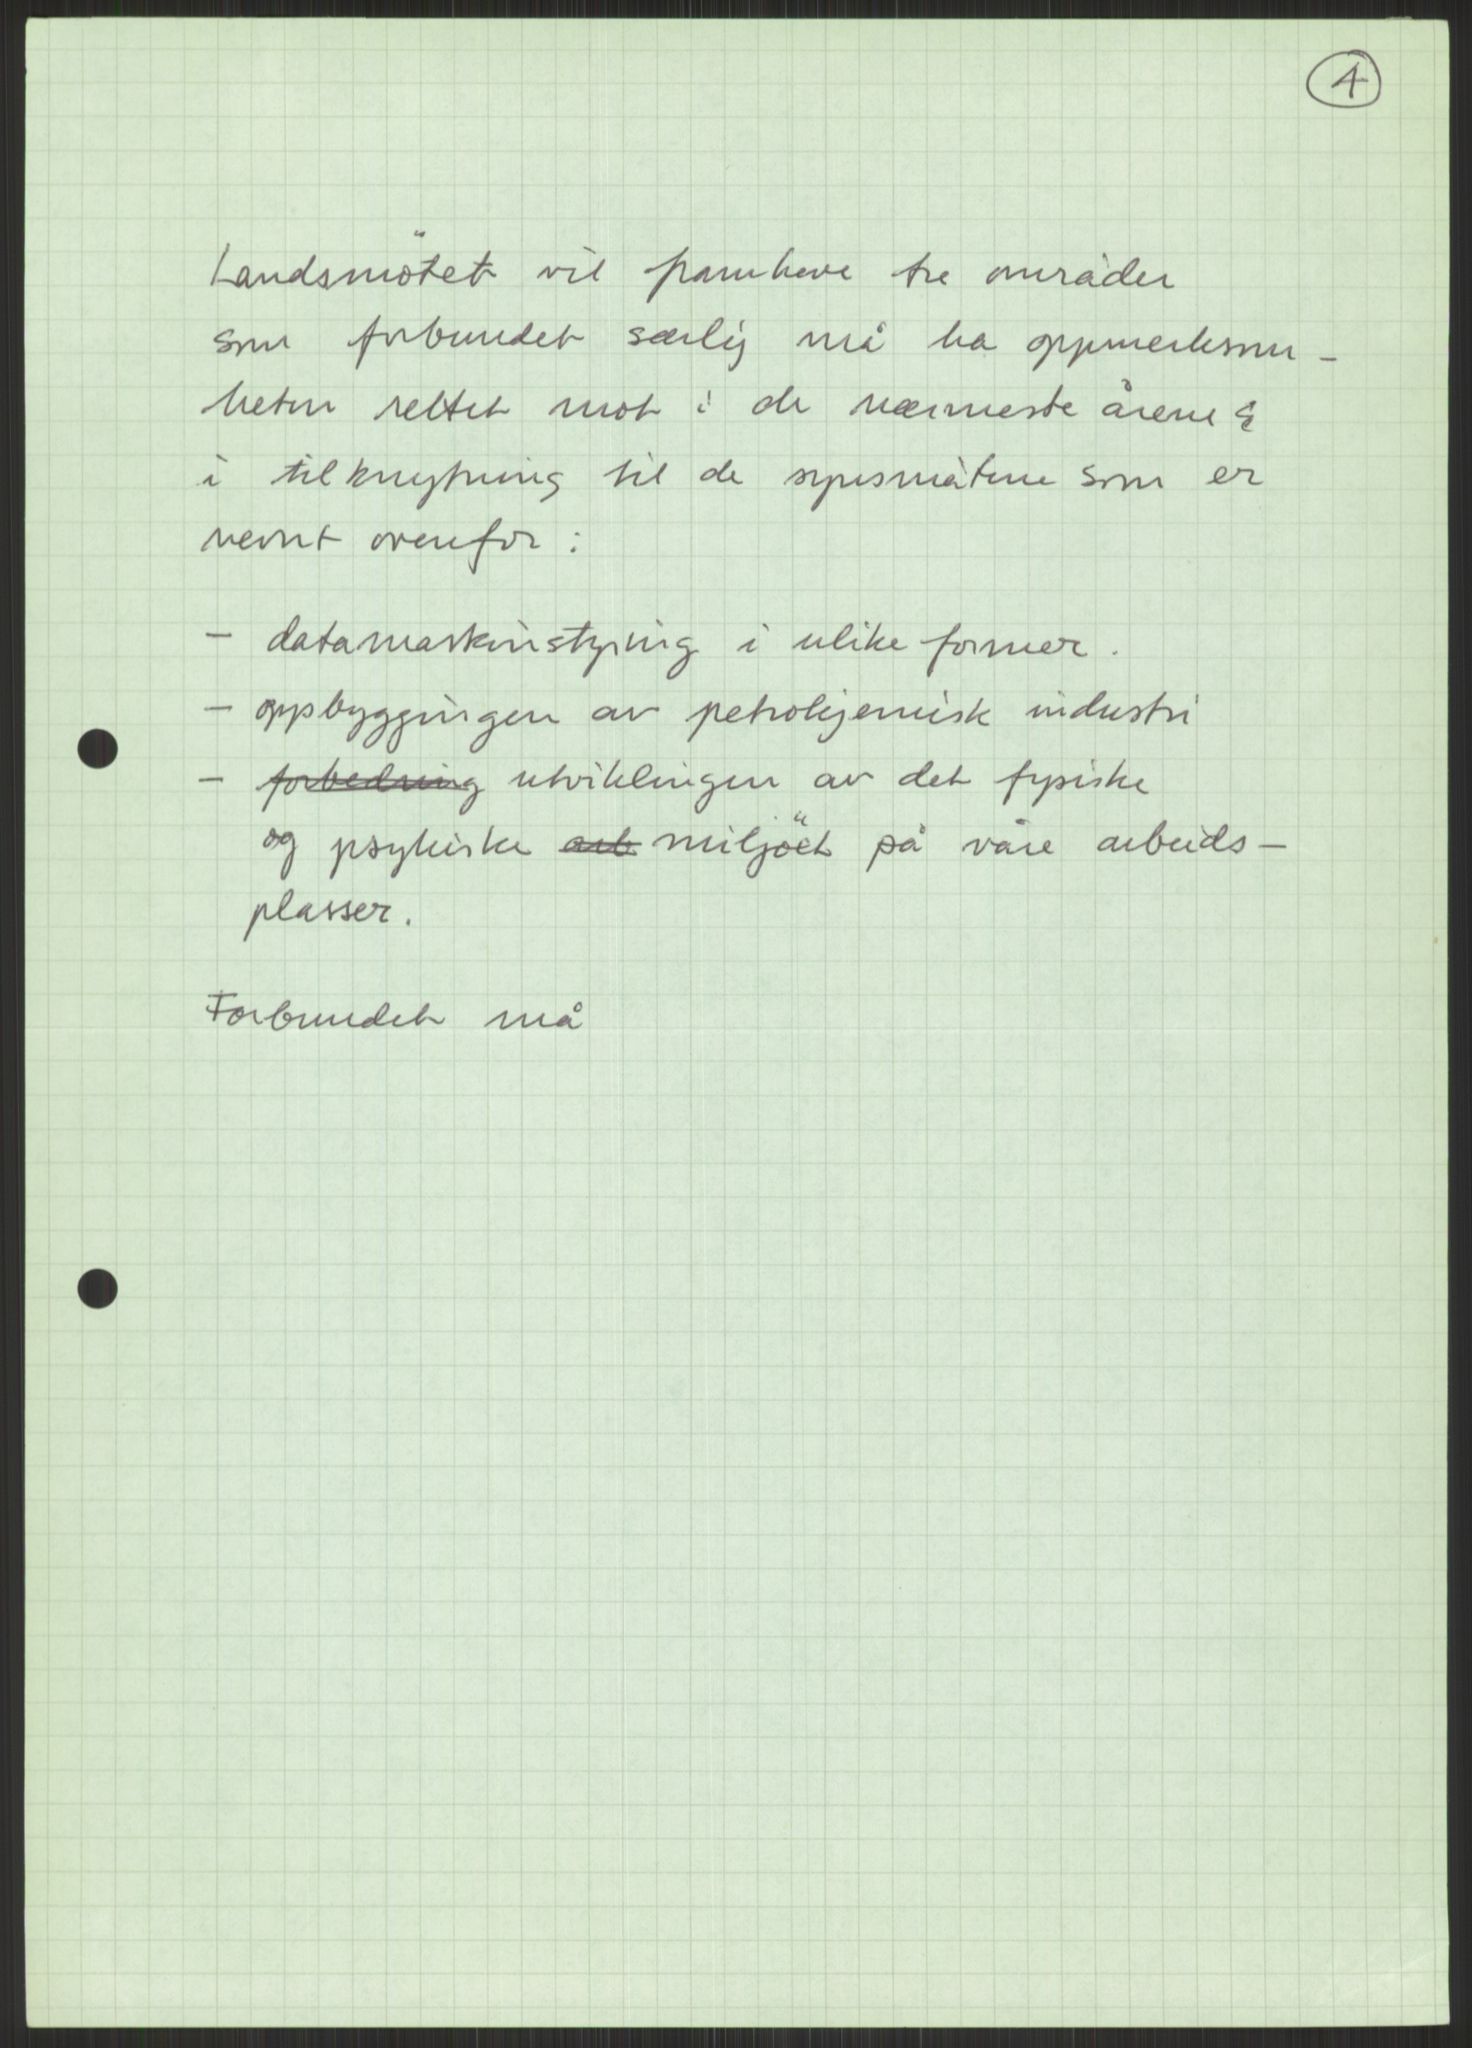 4
Landsmötet vil framheve tre områder
som forbundet særlig må ha oppmerksom-
heten rettet mot i de nærmeste årene &
i tilknytning til de synsmåtene som er
nevnt ovenfor:
- datamaskinstyring i ulike former.
- oppbyggingen av petrokjemisk industri
- forbedring utviklingen av det fysiske
og psykiske arb miljöet på våre arbeids-
plasser.
Forbundet må